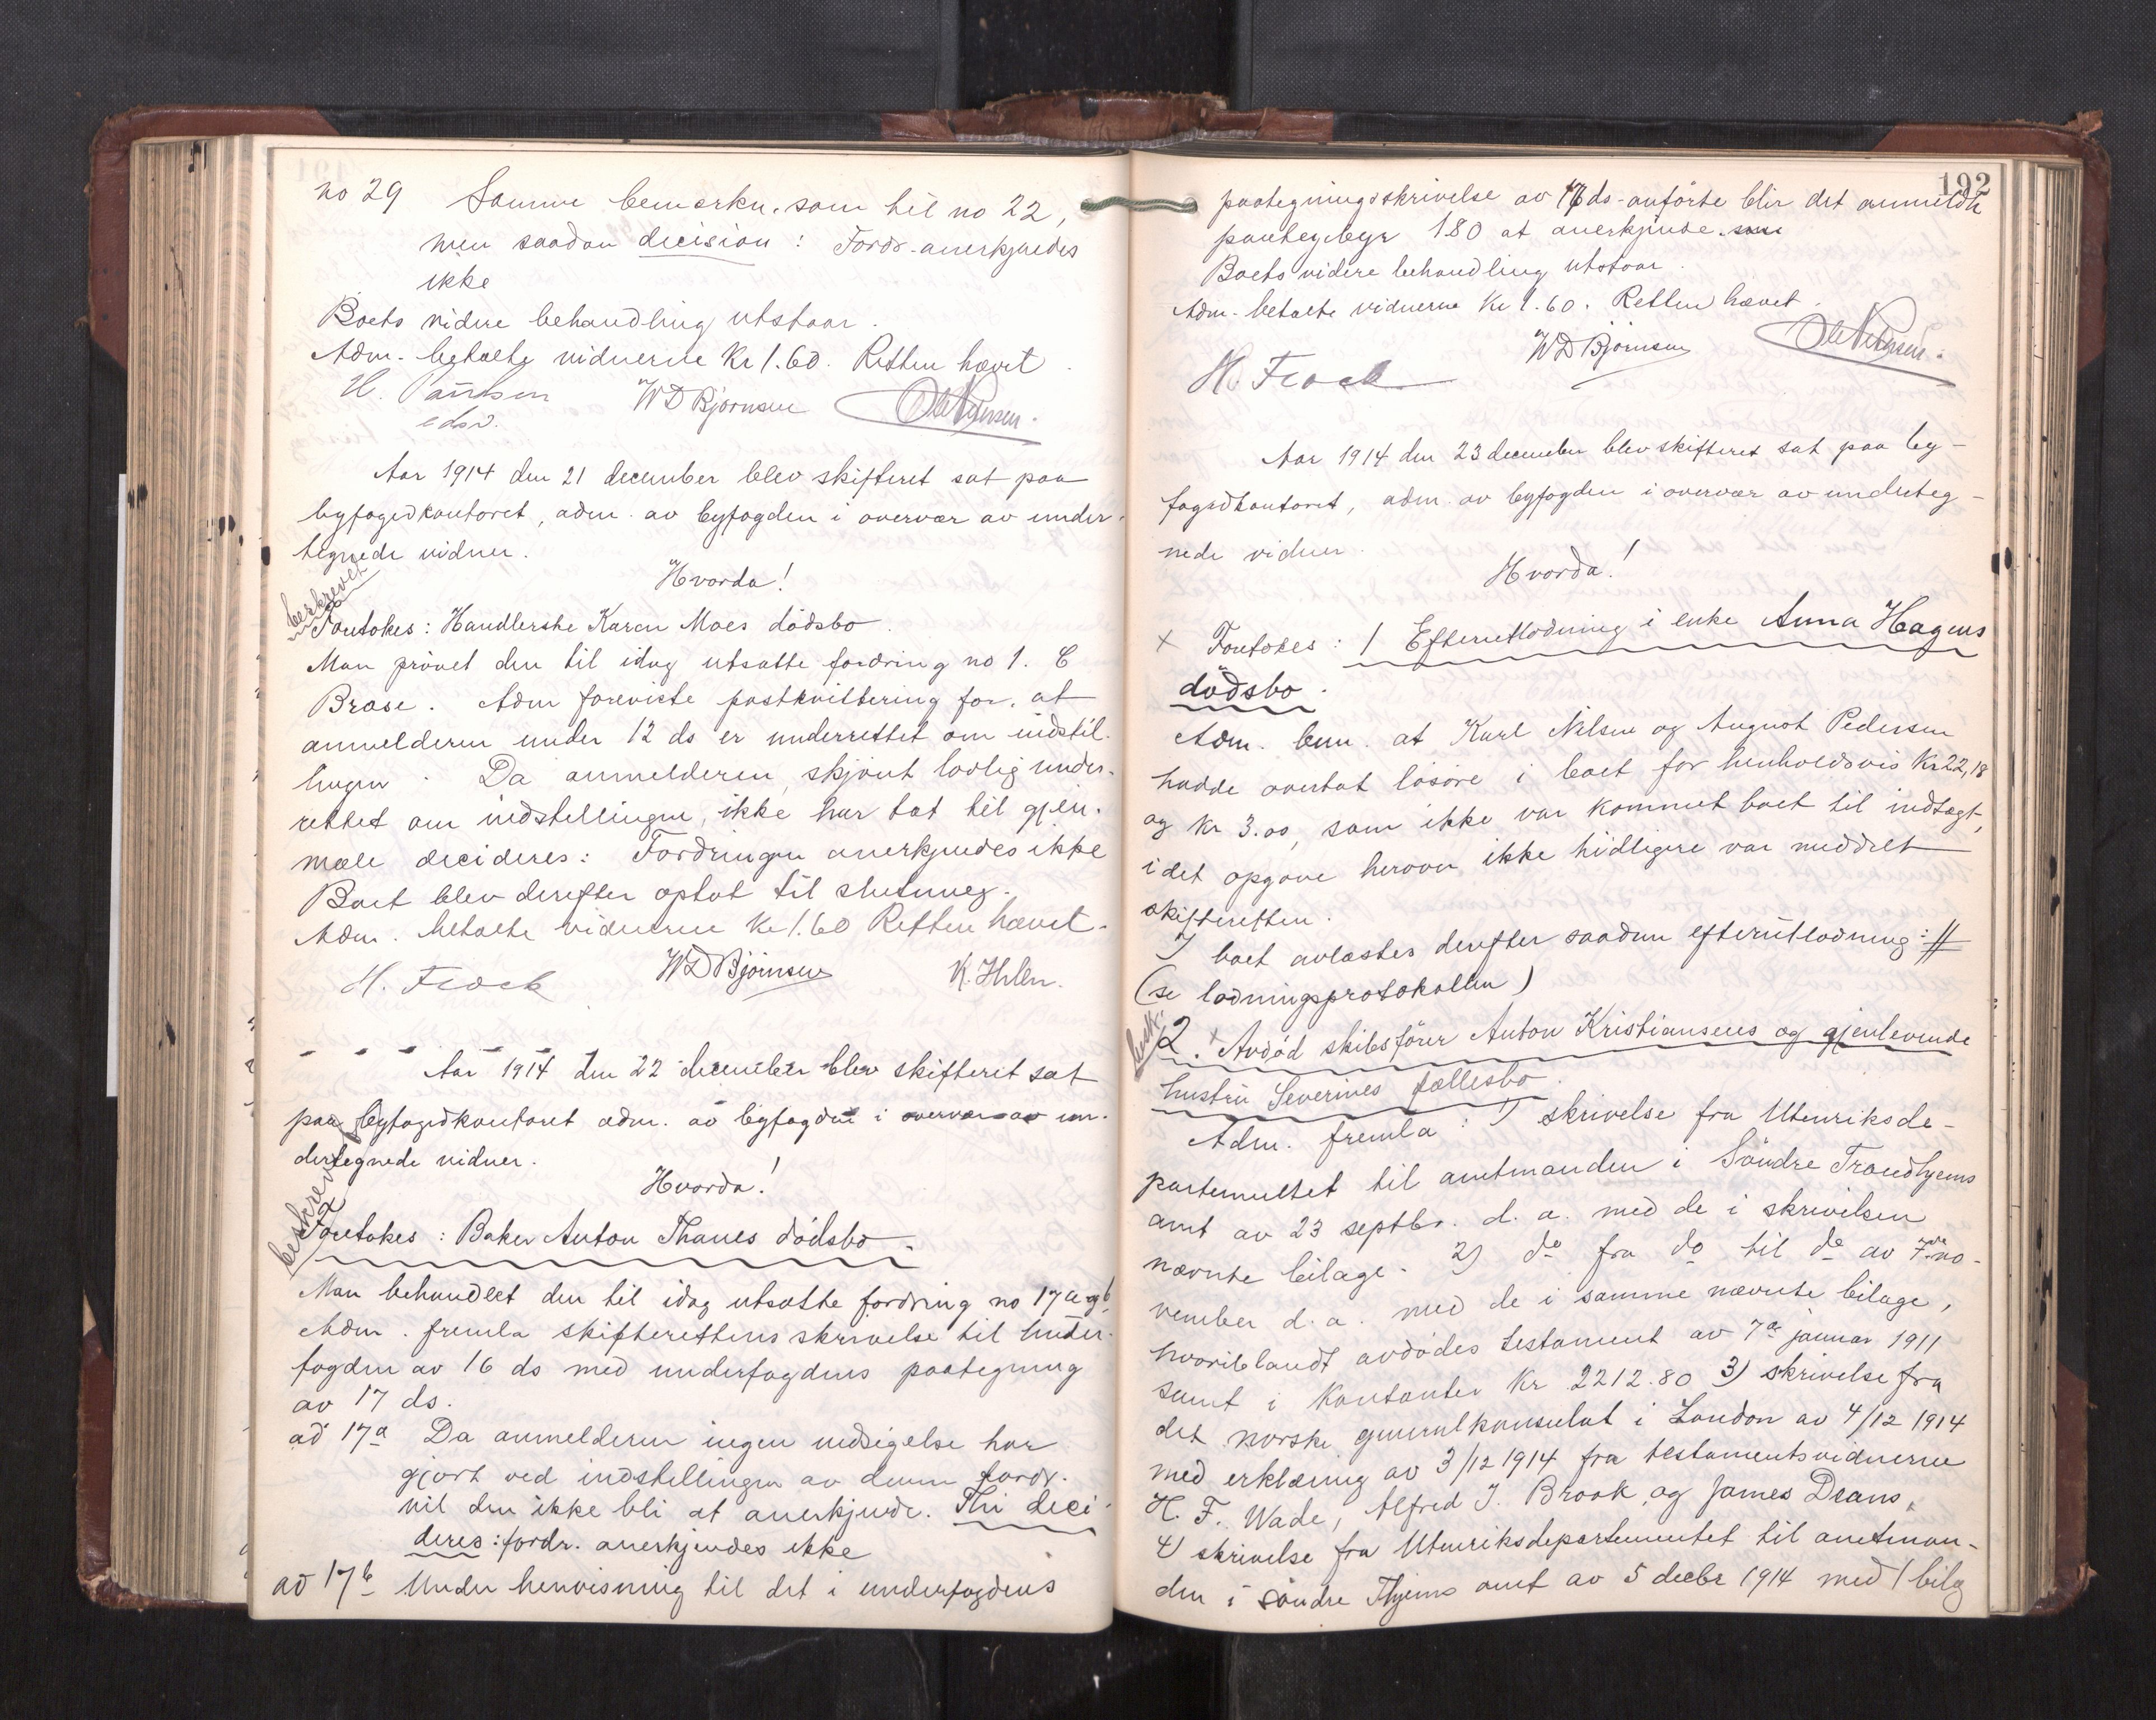 no 29 Samme bemærkn. som til no 22,
men saadan decision: Fordr. anerkjendes
ikke
Boets videre behandling utstaar.
Adm. betalte vidnerne Kr 1.60. Retten hævet.
H. Paulsen WD Bjørnsen Ole Nilssen.
edsv.
Aar 1914 den 21 december blev skifteret sat paa
byfogedkontoret, adm. av byfogden i overvær av under-
tegnede vidner.
Hvorda!
beskrevet
Foretokes: Handlerske Karen Moes dödsbo.
Man prövet den til idag utsatte fordring no 1. C
Brose. Adm foreviste postkvittering for, at
anmelderen under 12 ds er underrettet om indstil-
lingen. Da anmelderen, skjönt lovlig under-
rettet om indstillingen, ikke har tat til gjen-
mæle decideres: Fordringen anerkjendes ikke
Boet blev derefter optat til slutning.
Adm. betalte vidnerne Kr 1.60 Retten hævet.
H. Frock WD Bjørnsen K. Ihlen.
Aar 1914 den 22 december blev skifteret sat
paa byfogedkontoret adm. av byfogden i overvær av un-
dertegnede vidner.
Hvorda!
beskrevet
Foretokes: Baker Anton Thanes dödsbo.
Man behandlet den til idag utsatte fordring no 17a og b.
Adm. fremla skifterettens skrivelse til under-
fogden av 16 ds med underfogdens paategning
av 17 ds.
ad 17a Da anmelderen ingen indsigelse har
gjort ved indstillingen av denne fordr.
vil den ikke bli at anerkjende. Thi deci-
deres: fordr. anerkjendes ikke
ad 17b Under henvisning til det i underfogdens
192
paategningsskrivelse av 17 ds. anförte blir det anmeldte
pantegebyr 1.80 at anerkjende.
Boets videre behandling utstaar.
Adm. betalte vidnerne Kr 1.60. Retten hævet.
H. Frock WD Bjørnsen Ole Nilssen.
Aar 1914 den 23 december blev skifteret sat paa by-
fogedkontoret, adm. av byfogden i overvær av underteg-
nede vidner.
Hvorda!
x Foretokes: 1 Efterutlodning i enke Anna Hagens
dödsbo.
Adm. bem. at Karl Nilsen og August Pedersen
hadde overtat lösöre i boet for henholdsvis Kr 22,18
og Kr 3.00, som ikke var kommet boet til indtægt,
idet opgave herover ikke tidligere var meddelt
skifteretten.
I boet avlæstes derefter saadan efterutlodning: #
(se lodningsprotokollen)
besk.
2. x Avdöd skibsförer Anton Kristiansens og gjenlevende
hustru Severines fællesbo.
Adm. fremla: 1) skrivelse fra Utenriksde-
partementet til amtmanden i Söndre Trondhjems
amt av 23 septbr. d. a. med de i skrivelsen
nævnte bilage. 2) do fra do til do av 7de no-
vember d. a. med de i samme nævnte bilage,
hvoriblandt avdödes testament av 7de januar 1911
samt i kontanter Kr 2212.80 3) skrivelse fra
det norske generalkonsulat i London av 4/12 1914
med erklæring av 3/12 1914 fra testamentsvidnerne
H. F. Wade, Alfred J. Brook og James Deans,
4) skrivelse fra Utenriksdepartementet til amtman-
den i söndre Thjems amt av 5 decbr 1914 med 1 bilag